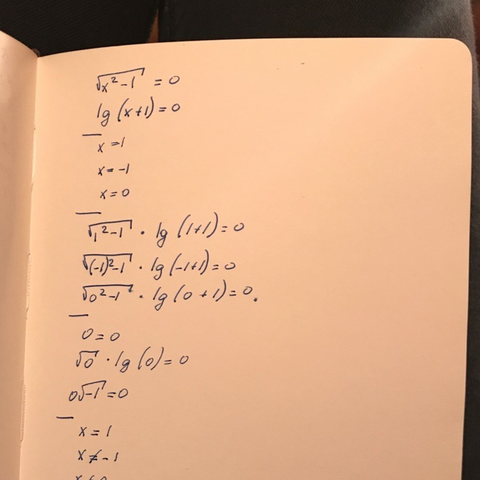 √x²-1 = 0
lg(x+1)=0
x=1
x=-1
x=0
√1²-1 · lg(1+1)=0
√(-1)²-1 · lg(-1+1)=0
√0²-1 · lg(0+1)=0.
0=0
√0 · lg(0)=0
0√-1=0
x=1
x≠-1